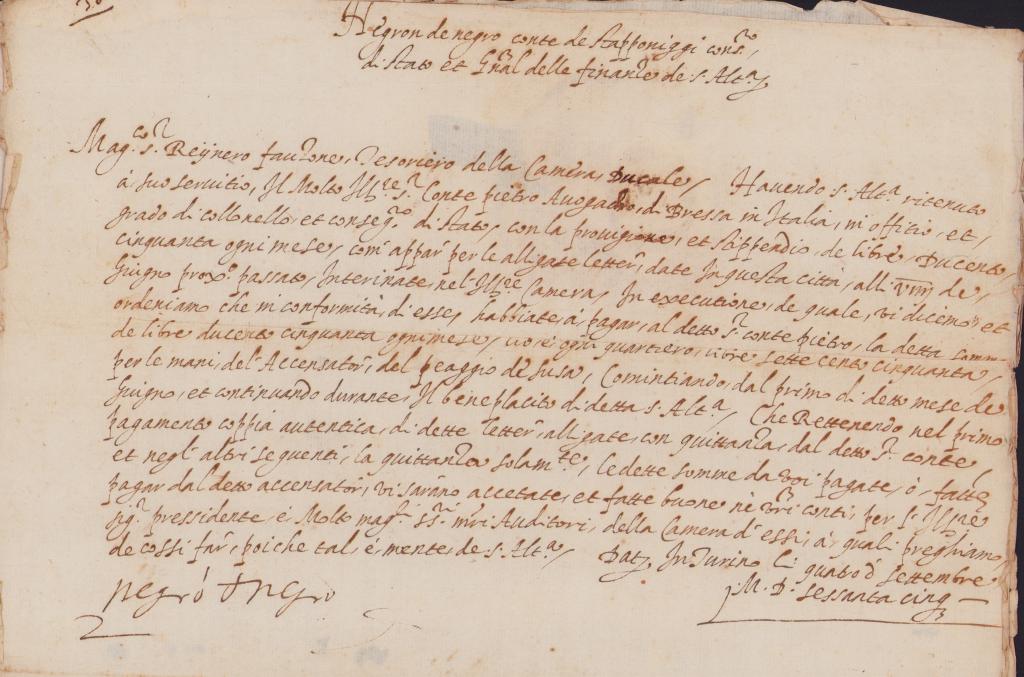 30
Negron de negro conte de stapponiggi cons.ro
di stato et gnāl delle finanze de s. Alt.a
Mag.co s.r Reÿnero fauzone, Tesoriero della Camera Ducale, Havendo s. Alt.a ritenuto
à suo servitio, Il Molto Ill.re s.r Conte pietro Avogadro, di Bressa in Italia, in officio, et,
grado di collonello, et conseg.ro di stato, con la provigione, et stippendio, de libre, Ducento,
cinquanta ogni mese, com' appar' per le alligate letter', date In questa città, alli viiij de,
Giugno pross.o passato, Interinate, nel' Ill.re Camera, In executione, de quale, vi dicemo et
ordeniamo che in conformità, di esse, habbiate, à, pagar, al detto s.r conte pietro, la detta somma
de libre ducento cinquanta ogni mese, cio è ogni quartiero, libre sette cento cinquanta,
per le mani, del' Accensator', del peaggio de susa, Comintiando, dal primo di detto mese de
Giugno, et continuando durante, Il beneplacito di detta s. Alt.a, Che Rettenendo nel primo
pagamento coppia autentica, di dette letter', alligate, con quittanza, dal detto s.r conte,
et negl' altri sequenti, la quittanza solam.te, le dette somme da voi pagate, ò, fatte
pagar dal detto accensator', vi sarāno accetate, et fatte buone nè vr̄i conti, per l' Ill.re
sig.r pressidente, e, Molto mag.ci ss.ri mr̄i Auditori, della Camera d' essi, à quali preghiamo,
de cossi far', poiche tal, é, mente, de s. Alt.a, Dat, In Turino li quatro d settembre
M. D. sessanta cinq
negrò negro